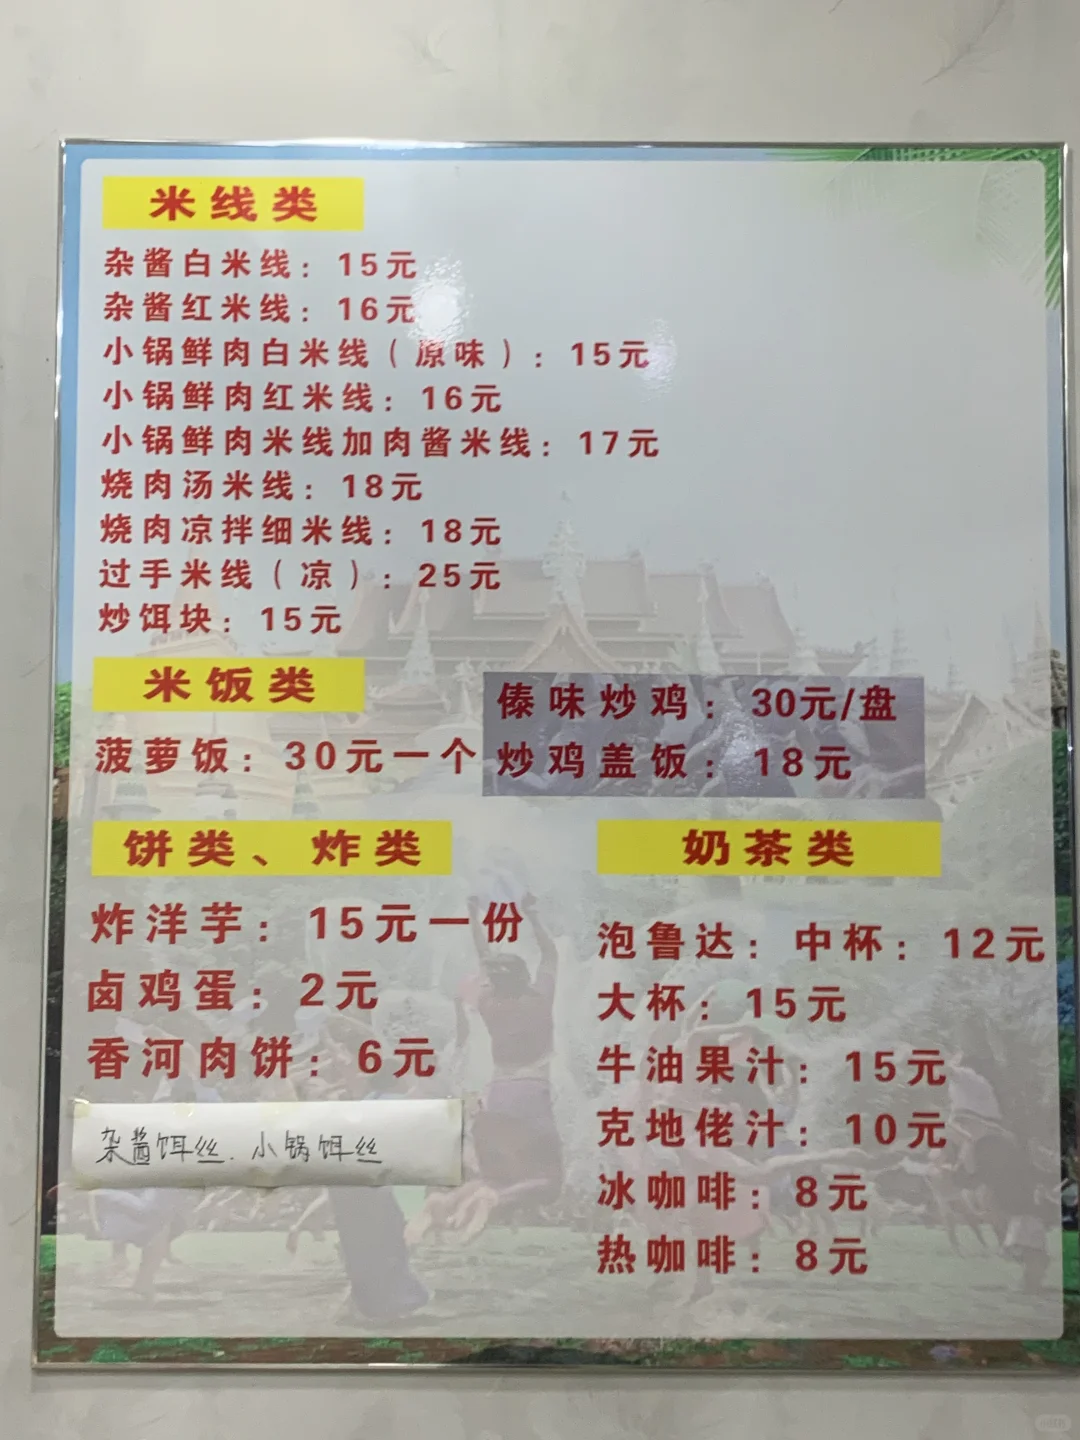 米线类
杂酱白米线：15元
杂酱红米线：16元
小锅鲜肉白米线（原味）：15元
小锅鲜肉红米线：16元
小锅鲜肉米线加肉酱米线：17元
烧肉汤米线：18元
烧肉凉拌细米线：18元
过手米线（凉）：25元
炒饵块：15元
米饭类
菠萝饭：30元一个
傣味炒鸡：30元/盘
炒鸡盖饭：18元
饼类、炸类
炸洋芋：15元一份
卤鸡蛋：2元
香河肉饼：6元
杂酱饵丝.小锅饵丝
奶茶类
泡鲁达：中杯：12元
大杯：15元
牛油果汁：15元
克地佬汁：10元
冰咖啡：8元
热咖啡：8元